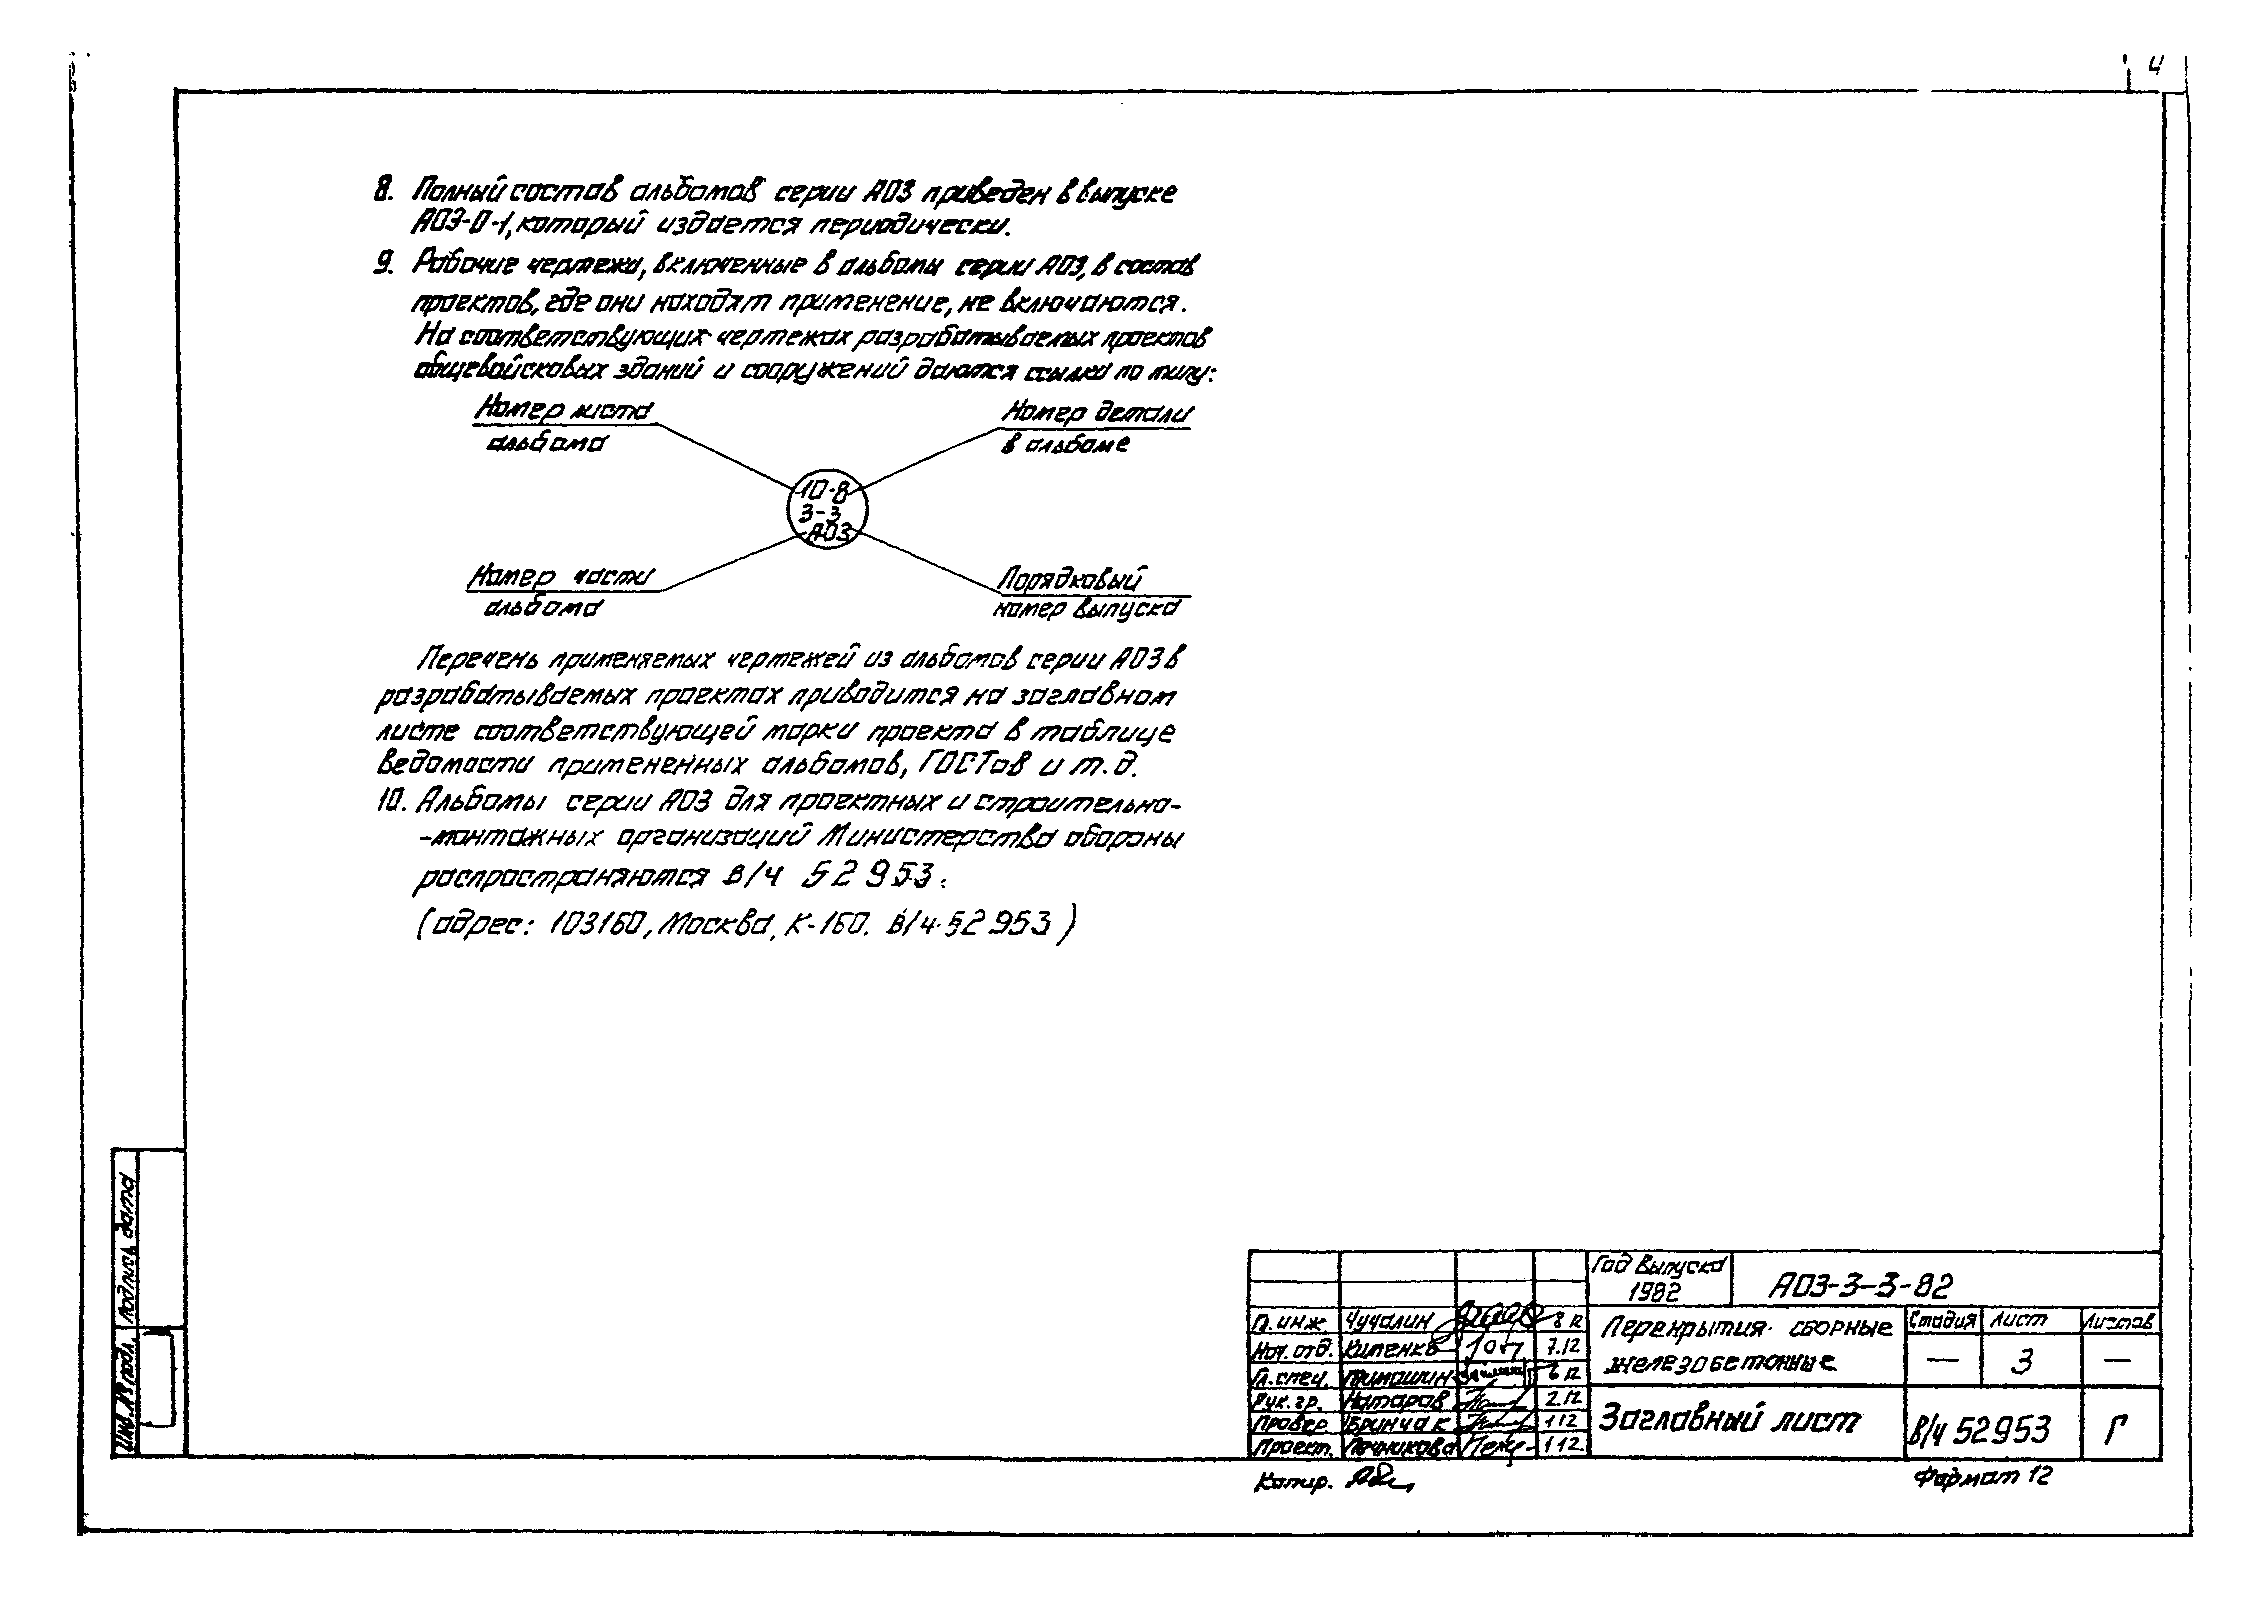 4
8. Полный состав альбомов серии А03 приведен в выпуске
А03-0-1, который издается периодически.
9. Рабочие чертежи, включенные в альбомы серии А03, в состав
проектов, где они находят применение, не включаются.
На соответствующих чертежах разрабатываемых проектов
общевойсковых зданий и сооружений даются ссылки по типу:
Номер листа
альбома
Номер детали
в альбоме
10-8
3-3
А03
Номер части
альбома
Порядковый
номер выпуска
Перечень применяемых чертежей из альбомов серии А03 в
разрабатываемых проектах приводится на заглавном
листе соответствующей марки проекта в таблице
ведомости примененных альбомов, ГОСТов и т.д.
10. Альбомы серии А03 для проектных и строительно-
-монтажных организаций Министерства обороны
распространяются в/ч 52953.
(адрес: 103160, Москва, К-160. в/ч 52953)
Инв. № подл. Подпись дата
Год выпуска
1982
А03-3-3-82
Гл. инж Чучалин 8 12
Нач. отд. Кипенко 7.12
Гл. спец. 6 12
Рук. гр. Натаров 2.12
Провер. Бринчак 1 12
Проект. Почникова 1 12.
Перекрытия сборные
железобетонные
Стадия Лист Листов
— 3 —
Заглавный лист
В/ч 52953 Г
Копир.
Формат 12